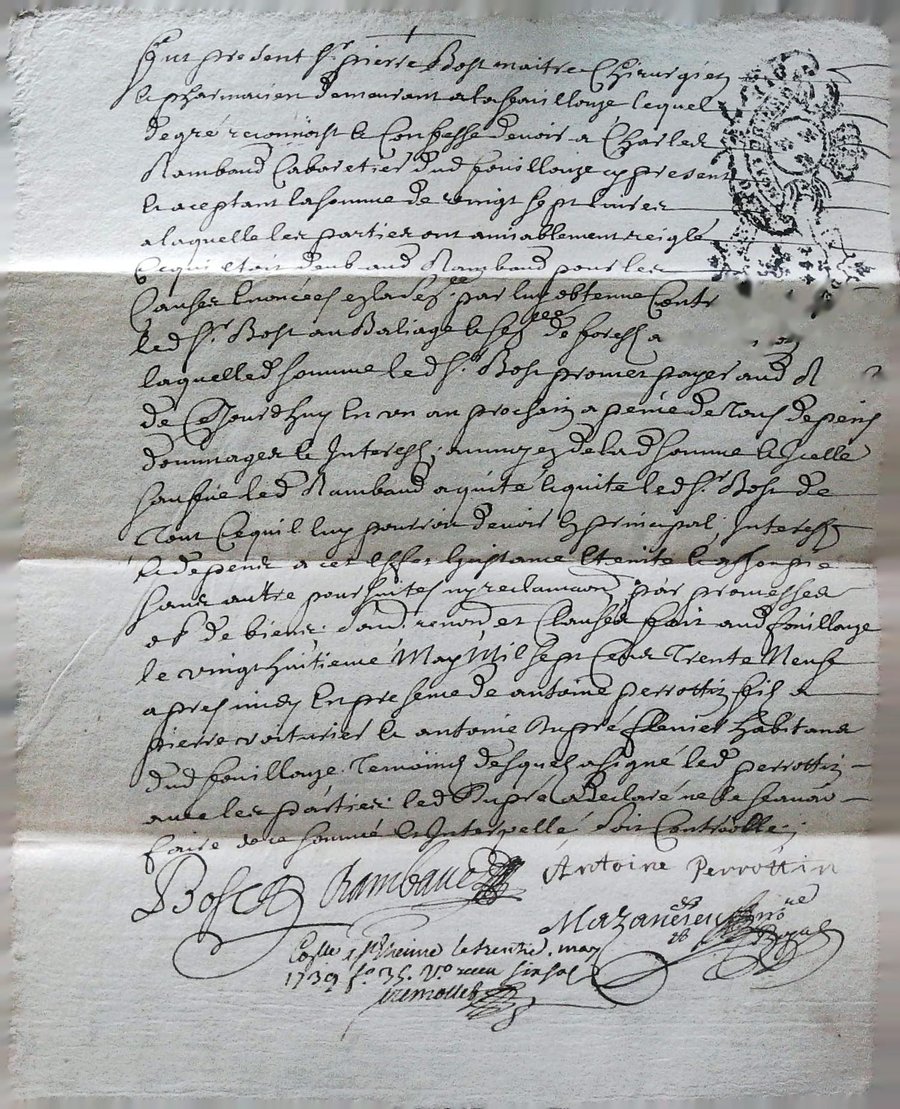 fut present Sr pierre Bost maitre Chirurgien
& pharmacien demeurant a la fouillouze lequel
de gré reconnoist & Confesse devoir a Charles
Rambaud Cabaretier dud fouillouze cy present
& aceptant la somme de vingt sept livres
a laquelle les parties ont amiablement reiglé
Ce qui etait deub aud Rambaud pour les
Causes enoncées par luy obtenue Contr
led Sr Bost au Baliage de forest a
laquelled somme led Sr Bost promet payer aud R
de Cejourdhuy en un an prochain a peine de Tous depens
dommages & Interest; moyen de lad somme & Icelle
sauf led Rambaud a quité & quite led Sr Bost de
Tout Ce quil luy pouvoit devoir en principal Interest
& depens a cet effet Linstance eteinte & assoupie
sans autre poursuites ny reclama˜on par promesses
ob de biens renon˜ et Clauses fait aud fouillouze
le vingt huitieme May Mil sept Cens Trente Neuf
apres midy En presence de antoine perrottin fils a
pierre voiturier & antoine Dupré habitans
dud fouillouze Temoins desquels a signé led perrottin
avec les parties led Dupré a declaré ne le scavoir
faire de ce sommé & Interpellé soit Controollé
Bost Rambaud Antoine Perrottin
Mazancieu Royal
Colle a St Etienne le trente may
1739 fo 35 Vo receu six sol